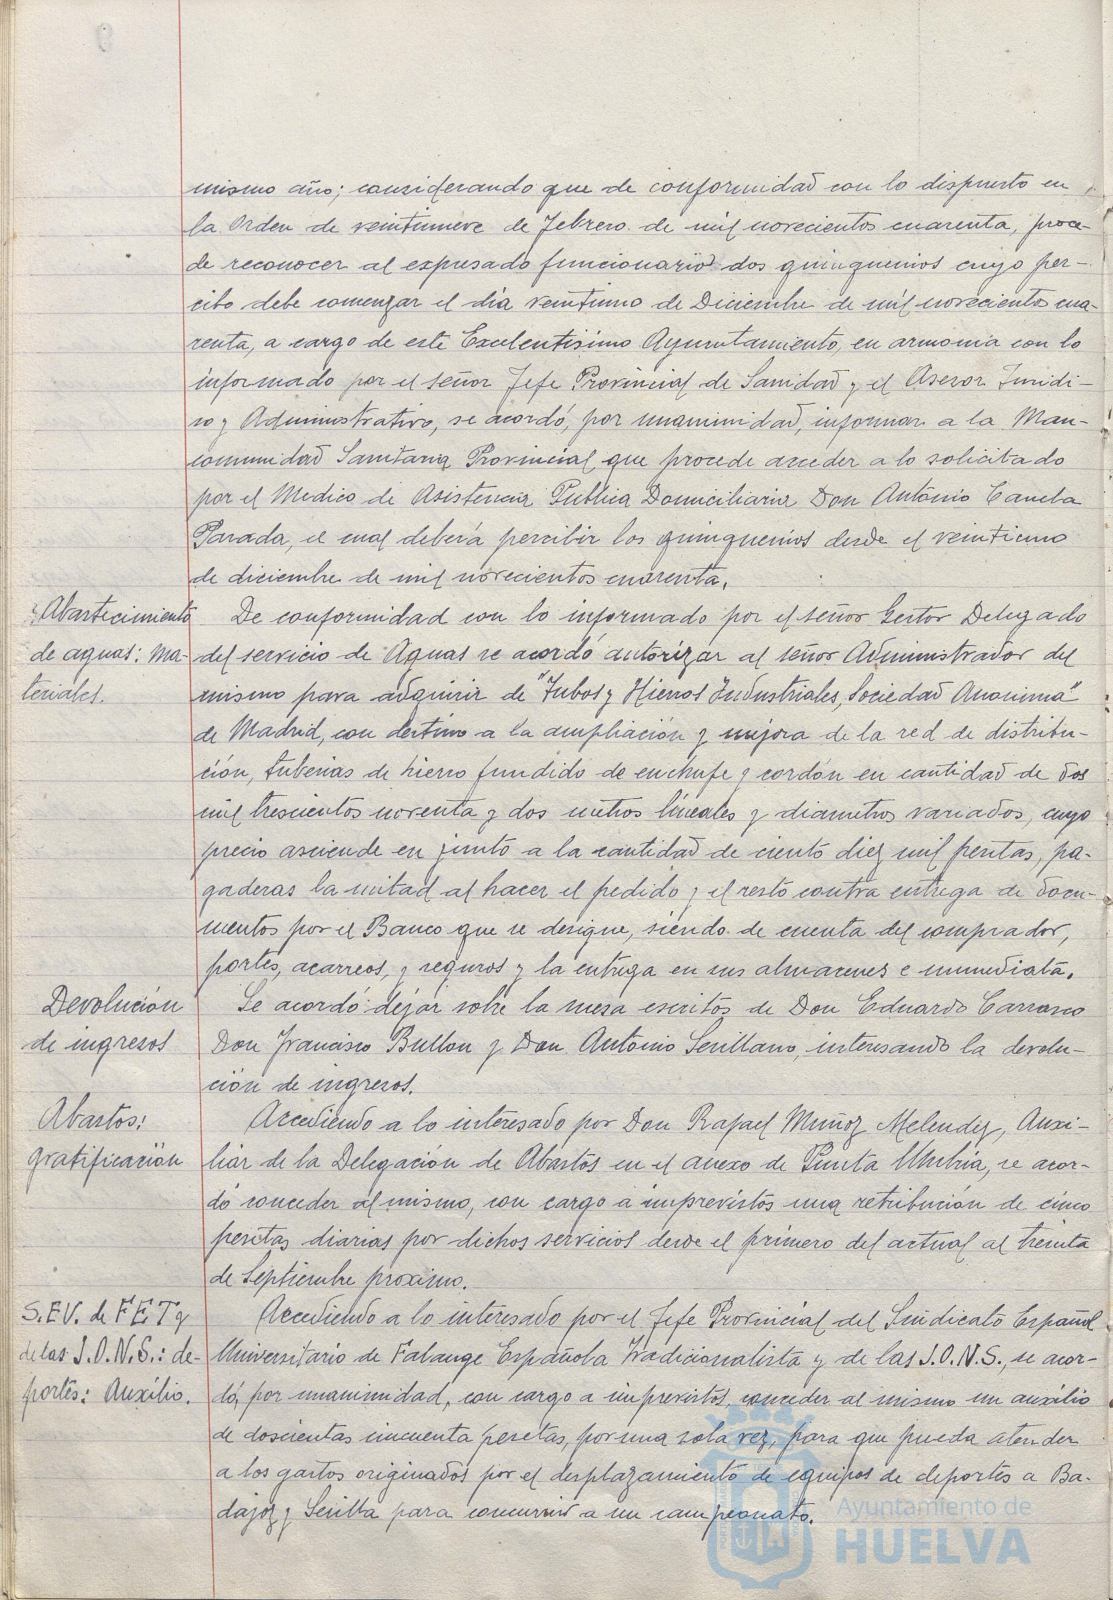 mismo año; considerando que de conformidad con lo dispuesto en
la Orden de veintinueve de Febrero de mil novecientos cuarenta, proce-
de reconocer al expresado funcionario dos quinquenios cuyo per-
cibo debe comenzar el día veintiuno de Diciembre de mil novecientos cua-
renta, a cargo de este Excelentísimo Ayuntamiento, en armonia con lo
informado por el señor Jefe Provincial de Sanidad y el Asesor Juridi-
co y Administrativo, se acordó, por unanimidad, informar a la Man-
comunidad Sanitaria Provincial que procede acceder a lo solicitado
por el Medico de Asistencia Publica Domiciliaria Don Antonio Canela
Parada, el cual deberá percibir los quinquenios desde el veintiuno
de diciembre de mil novecientos cuarenta.
Abastecimiento
de aguas: Ma-
teriales.
De conformidad con lo informado por el señor Gestor Delegado
del servicio de Aguas se acordó autorizar al señor Administrador del
mismo para adquirir de "Tubos y Hierros Industriales, Sociedad Anonima"
de Madrid, con destino a la ampliación y mejora de la red de distribu-
ción, tuberias de hierro fundido de enchufe y cordón en cantidad de dos
mil trescientos noventa y dos metros lineales y diametros variados, cuyo
precio asciende en junto a la cantidad de ciento diez mil pesetas, pa-
gaderas la mitad al hacer el pedido y el resto contra entrega de docu-
mentos por el Banco que se designe, siendo de cuenta del comprador,
portes, acarreos, y seguros y la entrega en sus almacenes e inmediata.
Devolución
de ingresos
Se acordó dejar sobre la mesa escritos de Don Eduardo Carrasco
Don Francisco Bullon y Don Antonio Serillano, interesando la devolu-
ción de ingresos.
Abastos:
gratificación
Accediendo a lo interesado por Don Rafael Muñoz Melendez, Auxi-
liar de la Delegación de Abastos en el anexo de Punta Umbria, se acor-
dó conceder al mismo, con cargo a imprevistos una retribución de cinco
pesetas diarias por dichos servicios desde el primero del actual al treinta
de Septiembre proximo.
S.E.U. de F E T y
de las J.O.N.S.: de-
portes: Auxilio.
Accediendo a lo interesado por el Jefe Provincial del Sindicato Español
Universitario de Falange Española Tradicionalista y de las J.O.N.S., se acor-
dó, por unanimidad, con cargo a imprevistos, conceder al mismo un auxilio
de doscientas cincuenta pesetas, por una sola vez, para que pueda atender
a los gastos originados por el desplazamiento de equipos de deportes a Ba-
dajoz y Sevilla para concurrir a un campeonato.
Ayuntamiento de
HUELVA